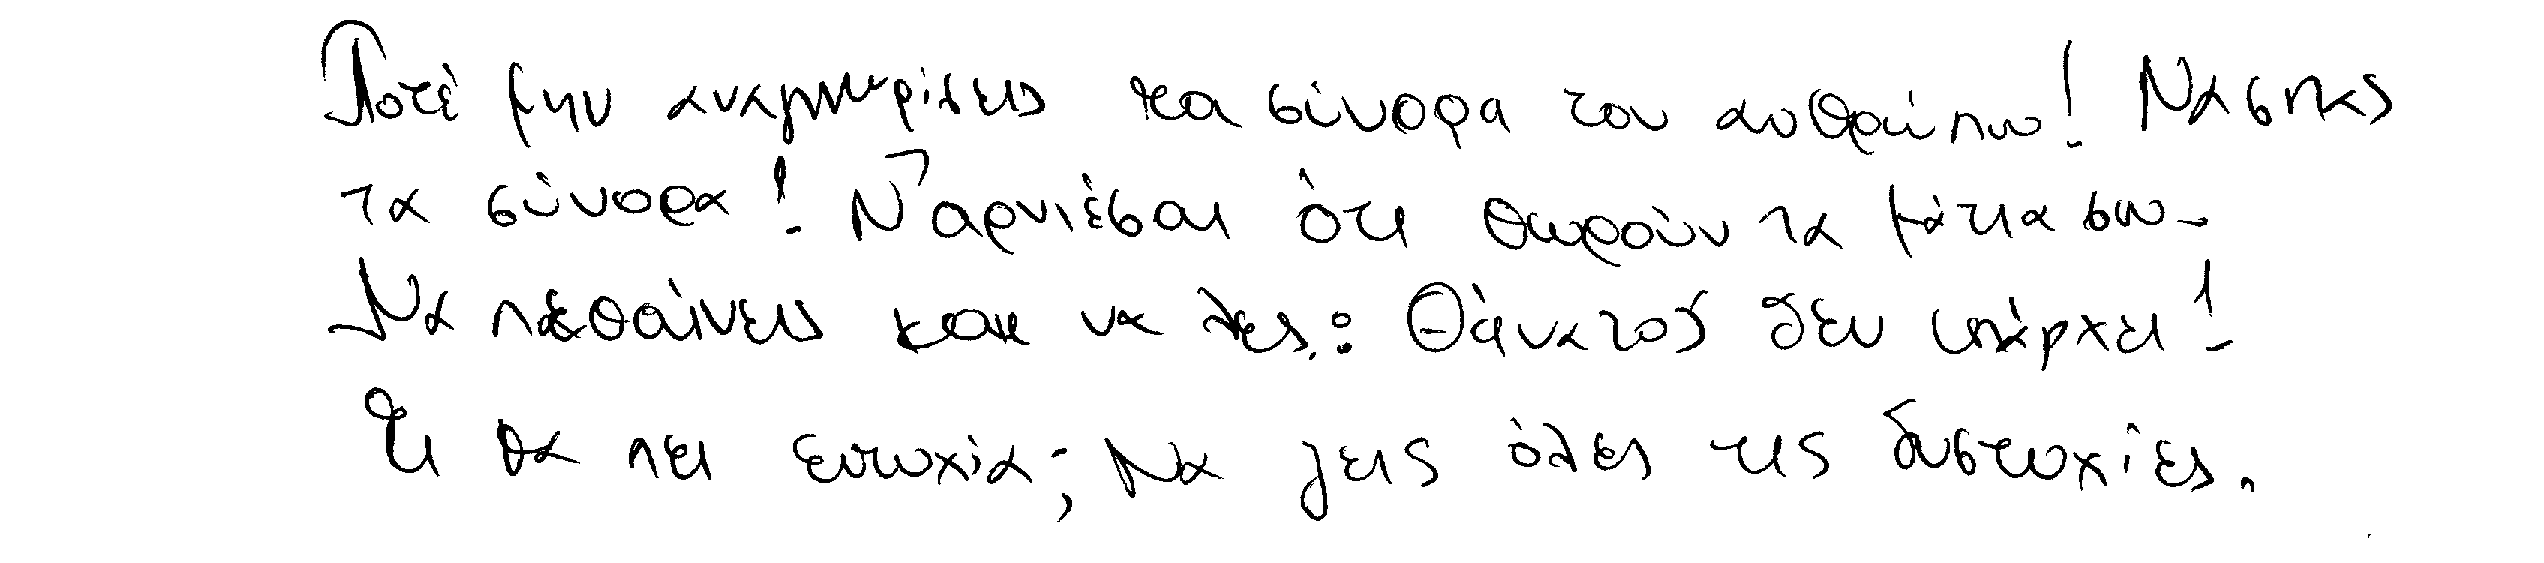 Ποτέ μην αναγνωρίσεις τα σύνορα του ανθρώπου! Να σπας
τα σύνορα! Ν' αρνιέσαι ότι θωρούν τα μάτια σου.
Να πεθαίνεις και να λες: Θάνατος δεν υπάρχει!
Τι θα πει ευτυχία; Να ζεις όλες τις δυστυχίες.